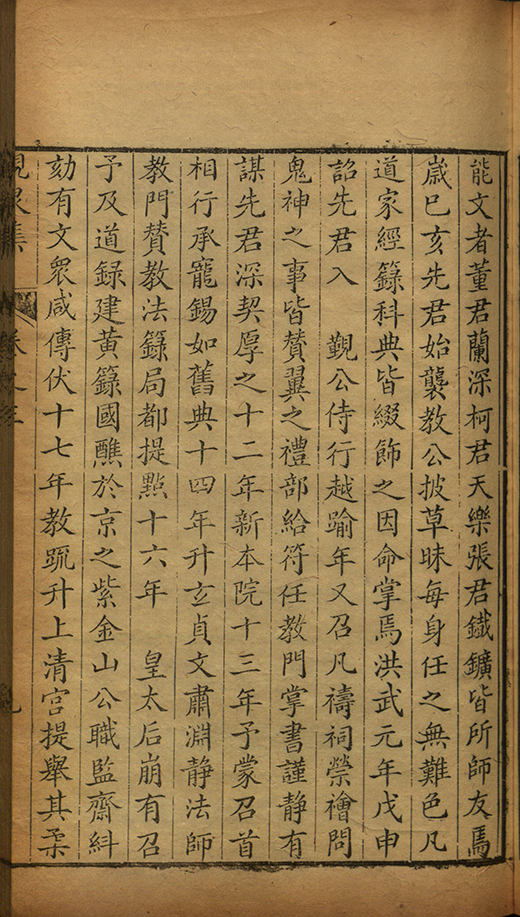 能文者董君蘭深柯君天樂張君鐵鑛皆所師友焉
歲己亥先君始襲教公披草昧每身任之無難色凡
道家經籙科典皆綴飾之因命掌焉洪武元年戊申
詔先君入　覲公侍行越踰年又召凡禱祠禜禬問
鬼神之事皆贊翼之禮部給符任教門掌書謹靜有
謀先君深契厚之十二年新本院十三年予蒙召首
相行承寵錫如舊典十四年升玄貞文肅淵靜法師
教門贊教法籙局都提點十六年　皇太后崩有召
予及道録建黃籙國醮於京之紫金山公職監齋糾
劾有文眾咸傳伏十七年教䟽升上清宮提舉其柔